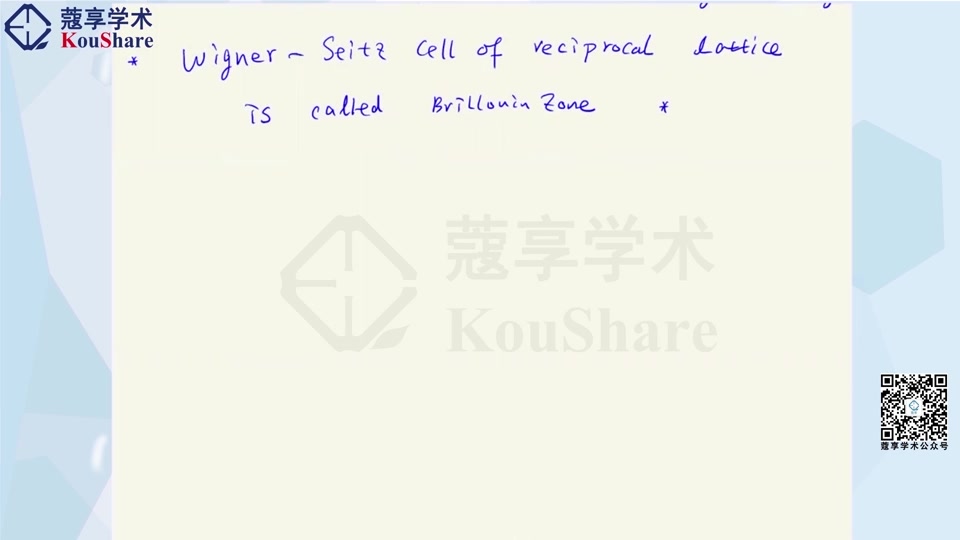 蔻享学术
KouShare
* Wigner - Seitz Cell of reciprocal lattice
is called Brillouin Zone *
蔻享学术
KouShare
蔻享学术公众号